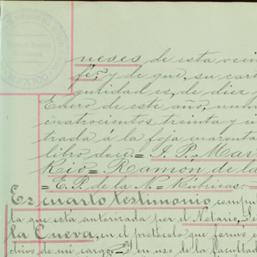 neses de esta veci
fez y de que, su cart
gutidad es, de diez
Enero de este año, núm
cuatrocientos treinta y u
trada á la foja cuarenta
libro doce.= J. P. Mas
Rio= Ramón de la
= E. P. de la A= Rúbricas.=
Es cuarto testimonio compu
ta que esta autorizada por el Notario, Se
la Cueva, en el protocolo que formó e
chivo de mi cargo. En uso de la facultad